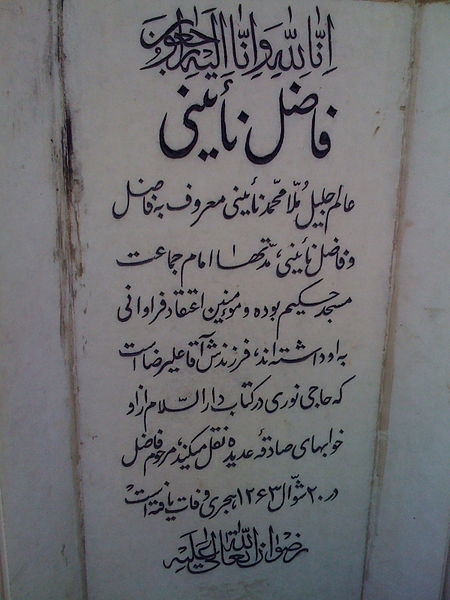 اِنّا لِلّٰهِ وَاِنّا اِلَیْهِ راجِعُونَ
فاضل نائینی
عالم جلیل مُلّا محمّد نائینی معروف به فاضل
و فاضل نائینی، مدّتها امام جماعت
مسجد حکیم بوده و مؤمنین اعتقاد فراوانی
به او داشته‌اند، فرزندش آقا علیرضا است
که حاجی نوری در کتاب دار السّلام از او
خوابهای صادقهٔ عدیده نقل میکند، مرحوم فاضل
در ۲۰ شوّال ۱۲۶۳ هجری وفات یافته است
رضوان الله تعالی علیه